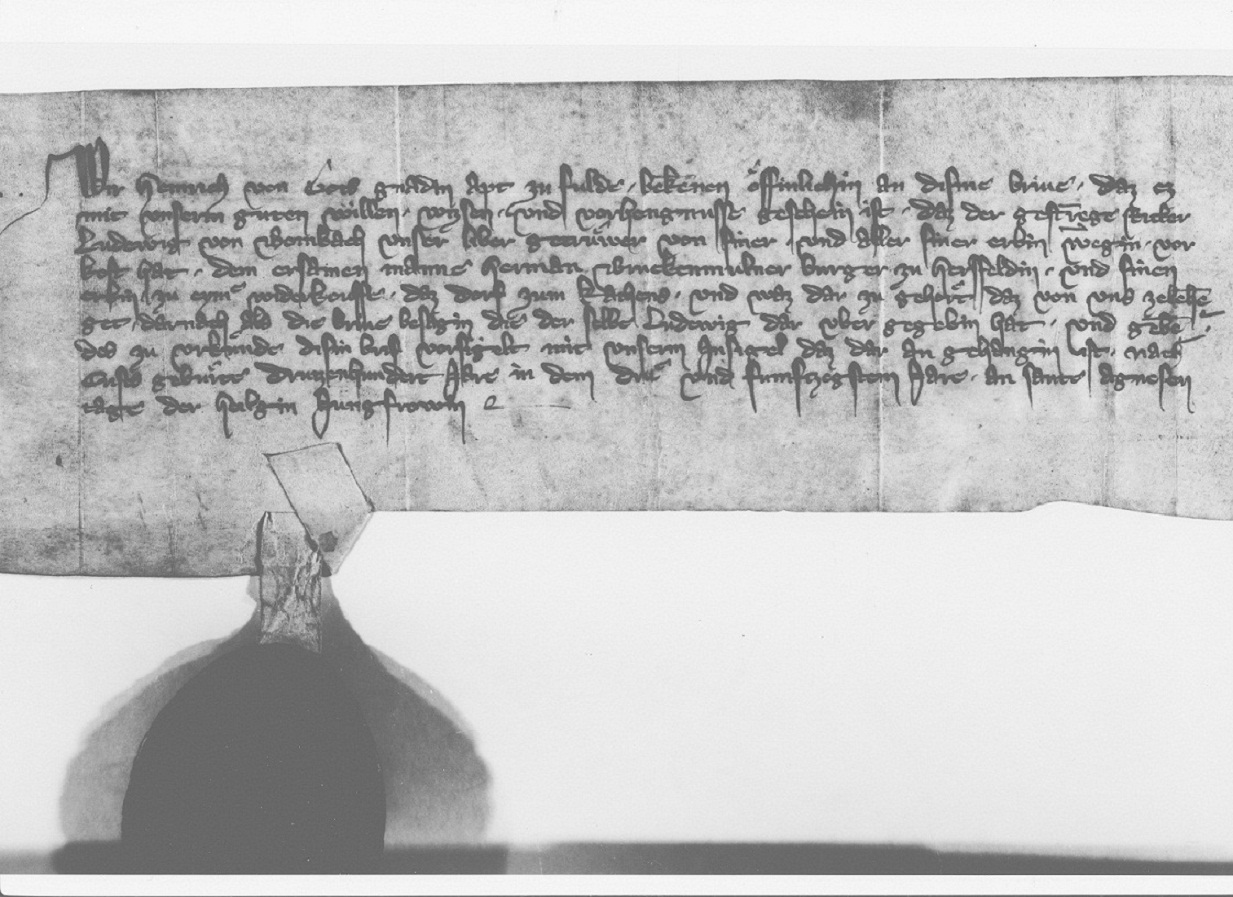 Wir Heinrich von Gots gnadin Apt zu fulde · bekenen offinlichin an disme briue · daz ez
mit unserm guten willen · wissen · und vorhengnusse geschehin ist · daz der gestrenge Ritter
Ludewig von Bombach unser liber getruwer von siner · und aller siner erbin wegin · vor
koft hat · dem ersamen manne Herman Bruckenmulner burger zu Hersfeldin · und sinen
erbin zu eyme widerkouffe · daz dorf zum · und waz dar zu gehort daz von uns zelehen
get · darnach als die briue besagin die der selbe Ludewig dar uber gegebin hat · und
des zu urkunde disin brif vorsigelt mit unserm Insigel daz dar an gehangin ist · nach
Cristi geburte druzenhundert Jare in dem drie und funfzigstem Jare · an sante Agnesen
tage der heilgin Jungfrowin